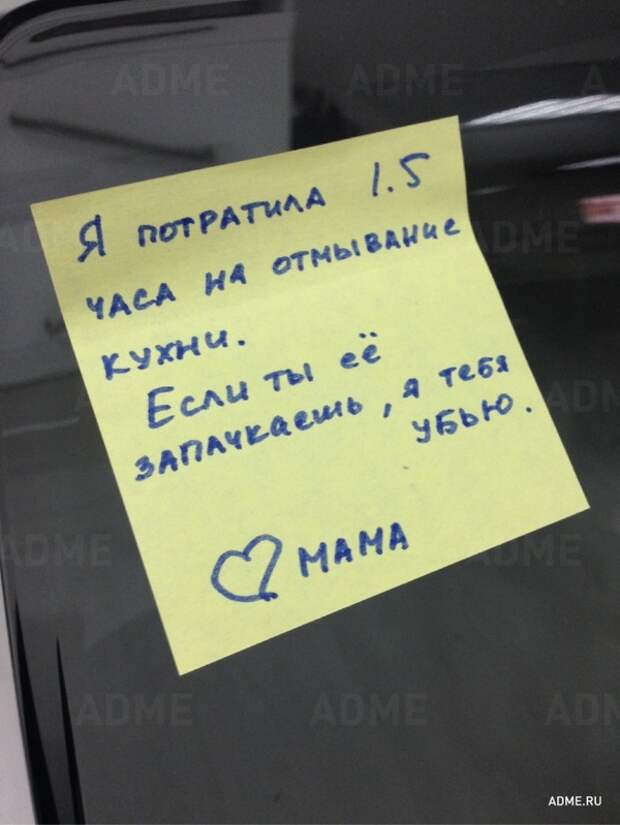 Я ПОТРАТИЛА 1.5
ЧАСА НА ОТМЫВАНИЕ
КУХНИ.
ЕСЛИ ТЫ ЕЁ
ЗАПАЧКАЕШЬ, Я ТЕБЯ
УБЬЮ.
♡ МАМА
ADME ADME A
AD DME
ADM
ADME ADME
ADME ADME AD
ADME.RU